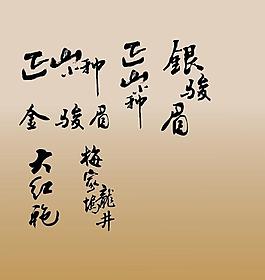 正山小种
金骏眉
正山小种
銀骏眉
大红袍
梅家塢
龍井